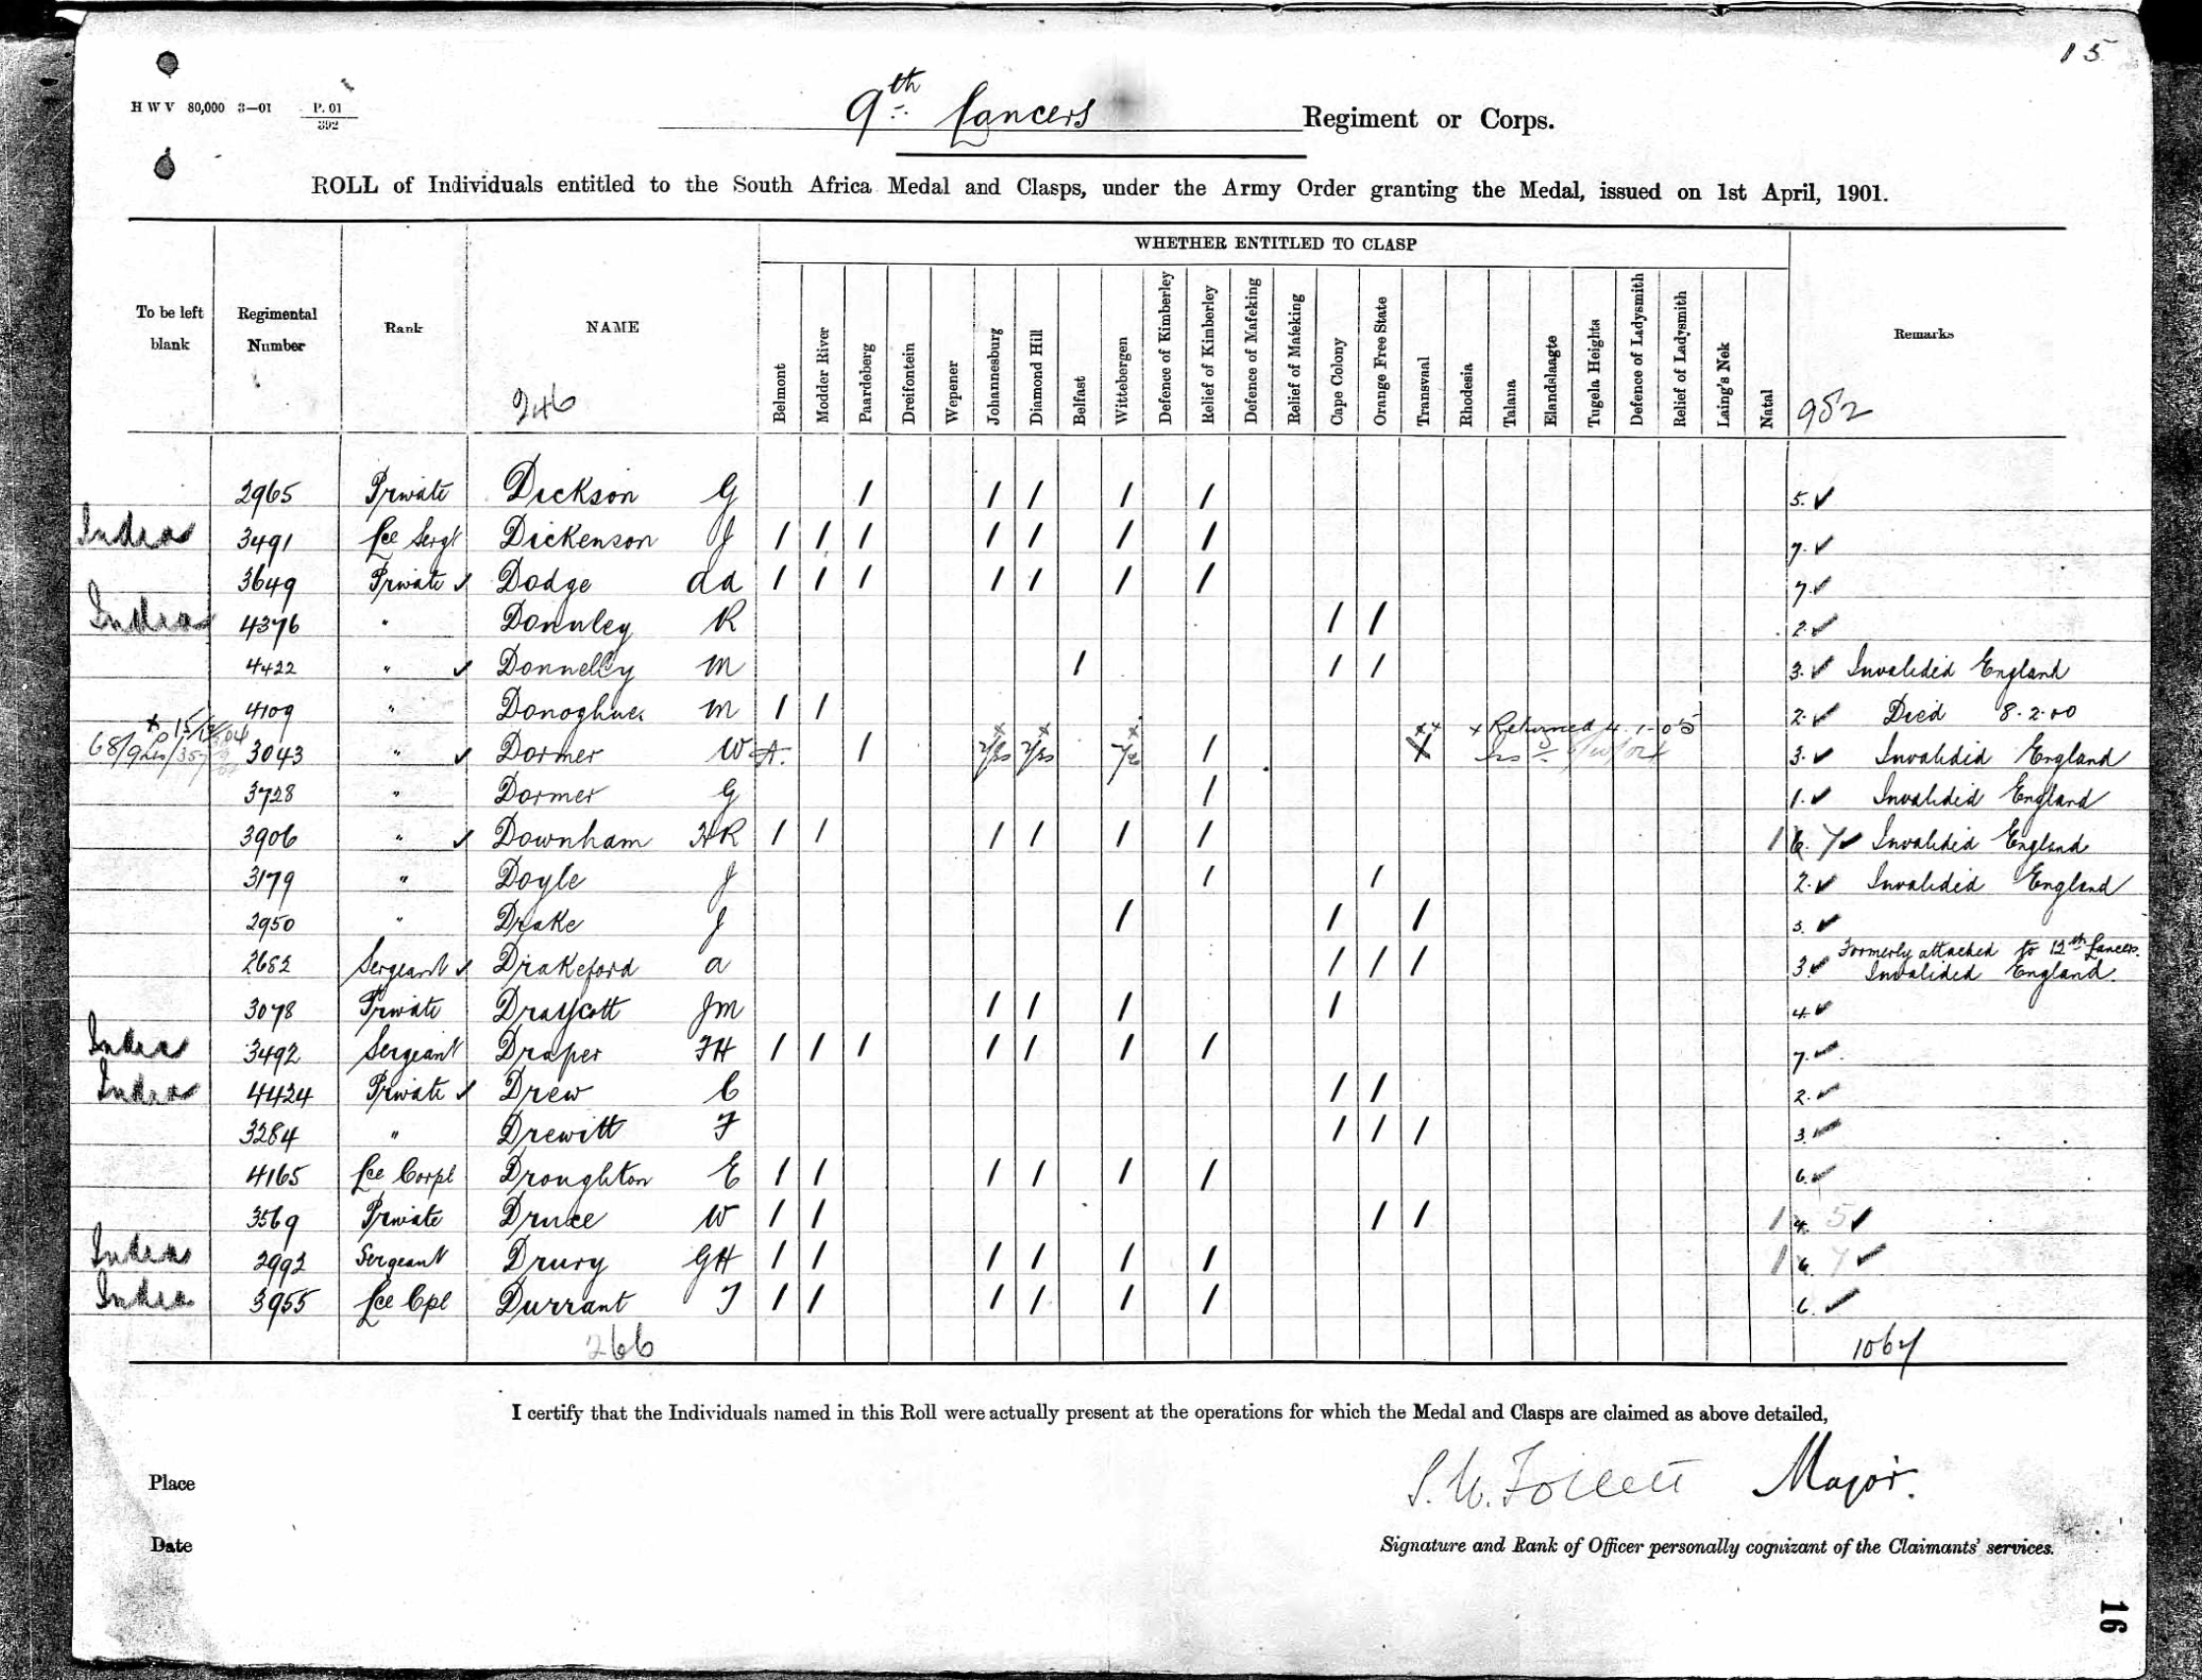 15
H W V 80,000 3—01 P. 01 / 392
9th Lancers Regiment or Corps.
ROLL of Individuals entitled to the South Africa Medal and Clasps, under the Army Order granting the Medal, issued on 1st April, 1901.
WHETHER ENTITLED TO CLASP
To be left blank Regimental Number Rank NAME Belmont Modder River Paardeberg Dreifontein Wepener Johannesburg Diamond Hill Belfast Wittebergen Defence of Kimberley Relief of Kimberley Defence of Mafeking Relief of Mafeking Cape Colony Orange Free State Transvaal Rhodesia Talana Elandslaagte Tugela Heights Defence of Ladysmith Relief of Ladysmith Laing's Nek Natal Remarks
246 952
2965 Private Dickson G / / / / / 5. ✓
India 3491 Lce Sergt Dickenson J / / / / / / / 7. ✓
3649 Private ✓ Dodge aa / / / / / / / 7 ✓
India 4376 " Donnley R / / 2. ✓
4422 " ✓ Donnelly M / / / 3. ✓ Invalided England
4109 " Donoghue M / / 2. ✓ Died 8.2.00
x Returned 4-1-05
68/9 Lrs/357 3043 " ✓ Dormer W / / 3. ✓ Invalided England
3728 " Dormer G / 1. ✓ Invalided England
3906 " ✓ Downham HR / / / / / / 1 6. 7 ✓ Invalided England
3179 " Doyle J / / 2. ✓ Invalided England
2950 " Drake J / / / 3. ✓
2682 Sergeant ✓ Drakeford a / / / 3 ✓ Formerly attached to 12th Lancers. Invalided England.
3078 Private Draycott JM / / / / 4 ✓
India 3492 Sergeant Draper FH / / / / / / / 7. ✓
India 4424 Private ✓ Drew C / / 2. ✓
3284 " Drewitt F / / / 3. ✓
4165 Lce Corpl Droughton E / / / / / / 6. ✓
3569 Private Druce W / / / / 1 4. 5 ✓
India 2992 Sergeant Drury GH / / / / / / 1 6. 7 ✓
India 3955 Lce Cpl Durrant T / / / / / / 6. ✓
266 1064
I certify that the Individuals named in this Roll were actually present at the operations for which the Medal and Clasps are claimed as above detailed,
Place
S.W. Follett Major.
Date
Signature and Rank of Officer personally cognizant of the Claimants' services.
16